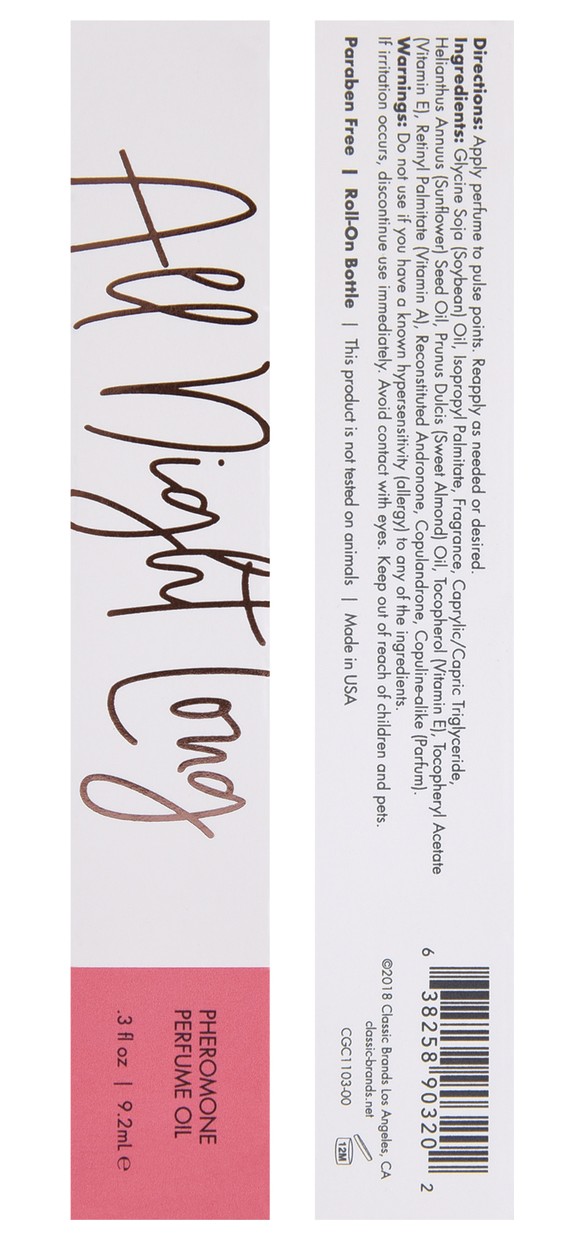 All Night Long
PHEROMONE
PERFUME OIL
.3 fl oz | 9.2mL ℮
Directions: Apply perfume to pulse points. Reapply as needed or desired.
Ingredients: Glycine Soja (Soybean) Oil, Isopropyl Palmitate, Fragrance, Caprylic/Capric Triglyceride,
Helianthus Annuus (Sunflower) Seed Oil, Prunus Dulcis (Sweet Almond) Oil, Tocopherol (Vitamin E), Tocopheryl Acetate
(Vitamin E), Retinyl Palmitate (Vitamin A), Reconstituted Andronone, Copulandrone, Copuline-alike (Parfum).
Warnings: Do not use if you have a known hypersensitivity (allergy) to any of the ingredients.
If irritation occurs, discontinue use immediately. Avoid contact with eyes. Keep out of reach of children and pets.
Paraben Free | Roll-On Bottle | This product is not tested on animals | Made in USA
6 38258 90320 2
©2018 Classic Brands Los Angeles, CA
classic-brands.net
CGC1103-00
12M